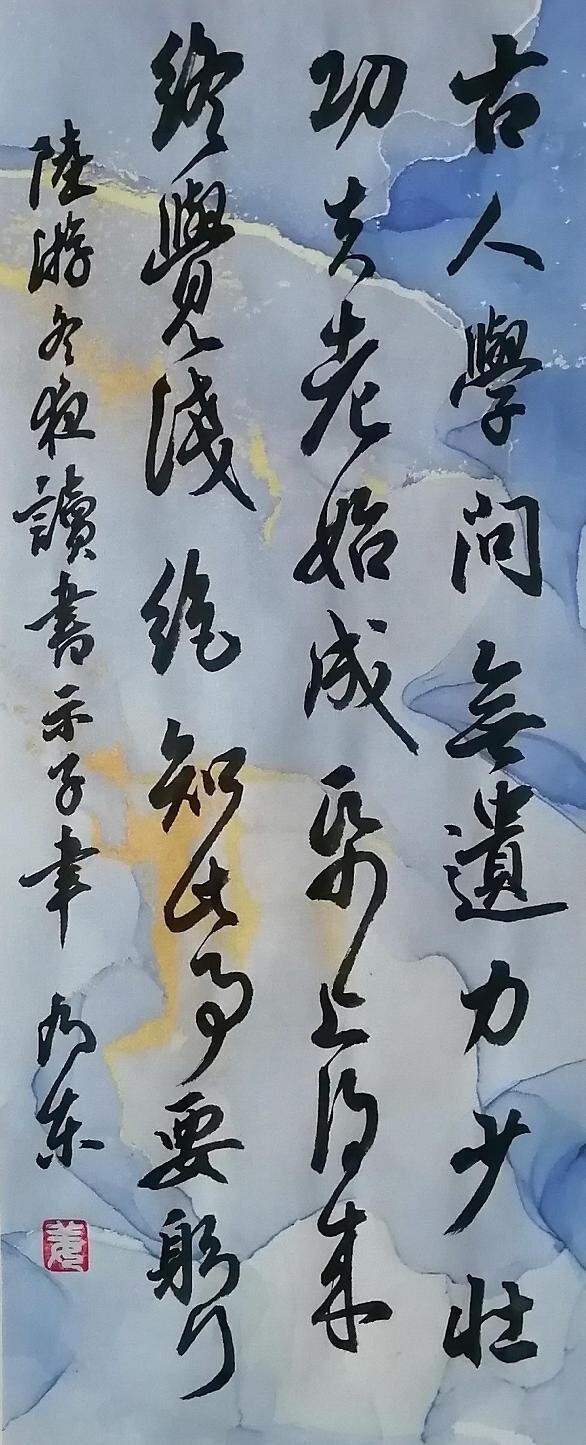 古人學問無遺力少壯
功夫老始成帋上得来
終覺淺絶知此事要躬行
陸游冬夜讀書示子聿